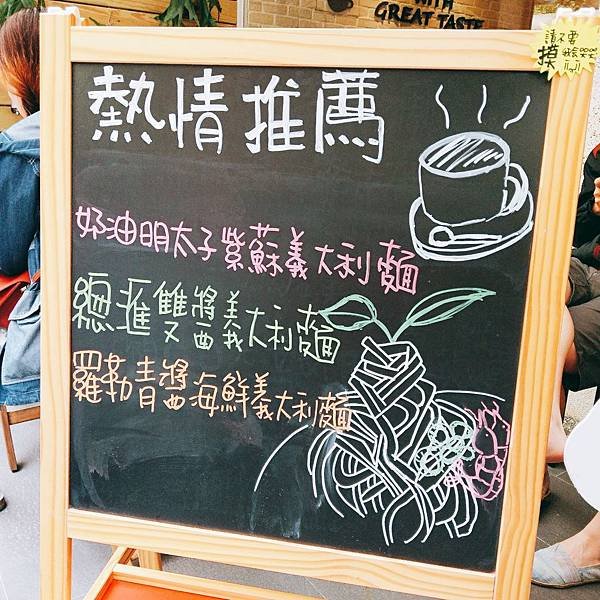 WITH
GREAT TASTE
請不要
摸
熱情推薦
奶油明太子紫蘇義大利麵
總滙雙醬義大利麵
羅勒青醬海鮮義大利麵